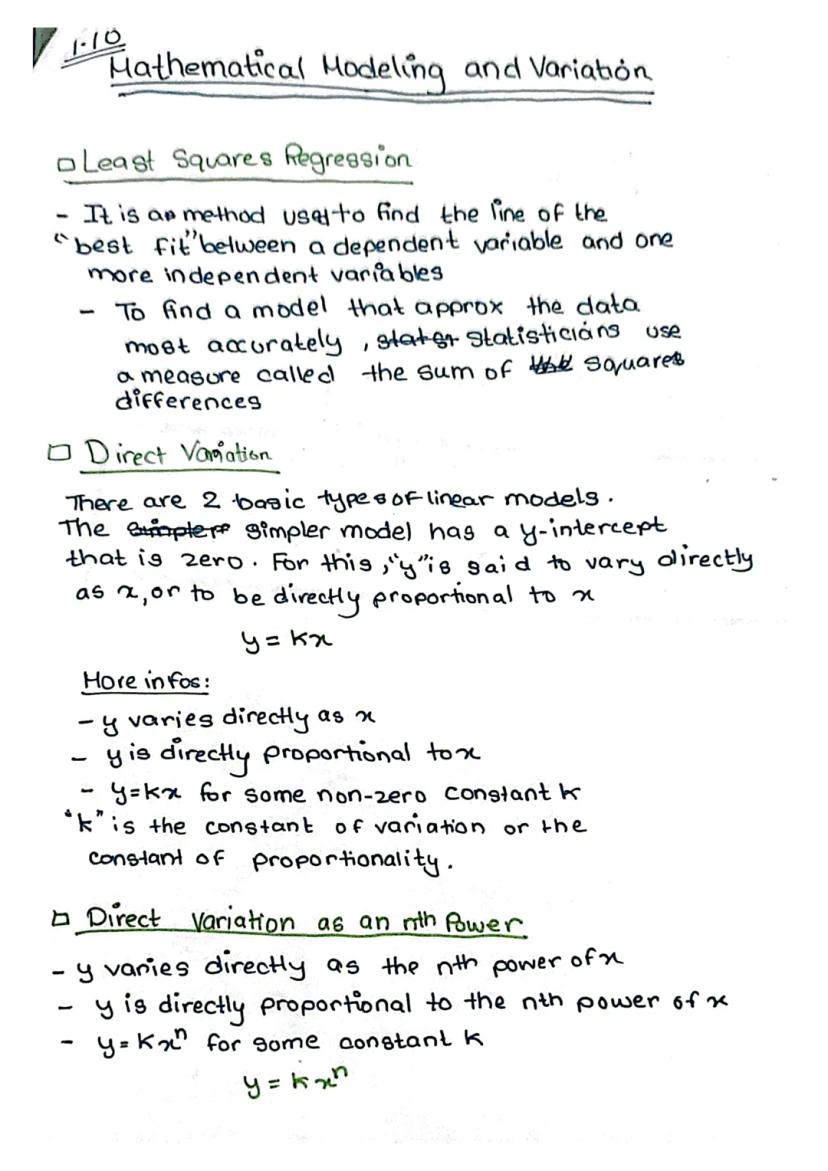 1.10
Mathematical Modeling and Variation
Least Squares Regression
- It is a method used to find the line of the
"best fit" between a dependent variable and one
more independent variables
- To find a model that approx the data
most accurately, statisticians use
a measure called the sum of squares
differences
Direct Variation
There are 2 basic types of linear models.
The simpler model has a y-intercept
that is zero. For this, "y" is said to vary directly
as x, or to be directly proportional to x
y = kx
More infos:
- y varies directly as x
- y is directly proportional to x
- y=kx for some non-zero constant k
"k" is the constant of variation or the
constant of proportionality.
Direct Variation as an nth Power
- y varies directly as the nth power of x
- y is directly proportional to the nth power of x
- y = kxⁿ for some constant k
y = kxⁿ